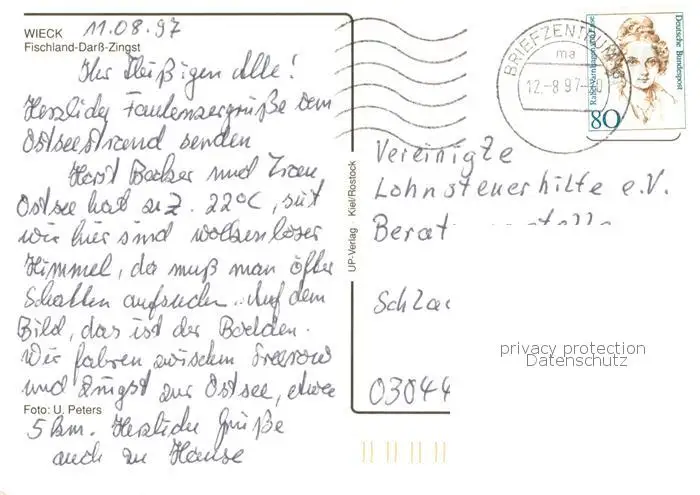 WIECK
11.08.97
Fischland-Darß-Zingst
Ihr Fleißigen Alle!
Herzliche Faulenzergrüße vom
Ostseestrand senden
Horst Becker und Frau
Ostsee hat z. Z. 22°C, seit
wir hier sind wolkenloser
Himmel, da muß man öfter
Schatten aufsuchen. Auf dem
Bild, das ist der Bodden.
Wir fahren zwischen
und Zingst zur Ostsee, etwa
Foto: U. Peters
5 km. Herzliche Grüße
auch zu Hause
UP-Verlag Kiel/Rostock
BRIEFZENTRUM
ma
12.-8.97
Deutsche Bundespost
80
Vereinigte
Lohnsteuerhilfe e.V.
Beratungsstelle
Schla
03044
privacy protection
Datenschutz